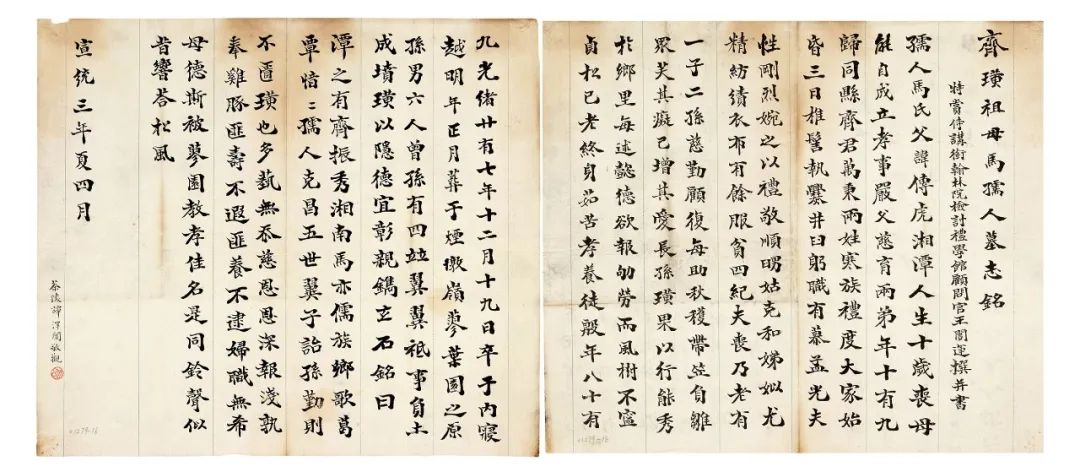 齊璜祖母馬孺人墓志銘
特賞侍講銜翰林院檢討禮學館顧問官王闓運撰并書
孺人馬氏父諱傳虎湘潭人生十歲喪母
能自成立孝事嚴父慈育兩弟年十有九
歸同縣齊君萬秉兩姓寒族禮度大家始
昏三日椎髻執爨井臼躬職有慕孟光夫
性剛烈婉之以禮敬順明姑克和娣姒尤
精紡績衣布有餘服貧四紀夫喪乃老有
一子二孫慈勤顧復每助秋穫帶笠負雛
眾笑其癡已增其愛長孫璜果以行能秀
於鄉里每述懿德欲報劬勞而風樹不寧
貞松已老終身茹苦孝養徒殷年八十有
九光緒廿有七年十二月十九日卒于內寢
越明年正月葬于煙墩嶺蓼葉園之原
孫男六人曾孫有四竝翼翼祇事負土
成墳璜以隱德宜彰親鐫立石銘曰
潭之有齊振秀湘南馬亦儒族鄉歌葛
覃愔〻孺人克昌五世翼子詒孫勤則
不匱璜也多藝無忝慈恩恩深報淺孰
奉雞豚匪壽不遐匪養不逮婦職無希
母德斯被蓼園教孝佳名是同鈴聲似
昔響荅松風
宣統三年夏四月
茶陵譚澤闓敬觀